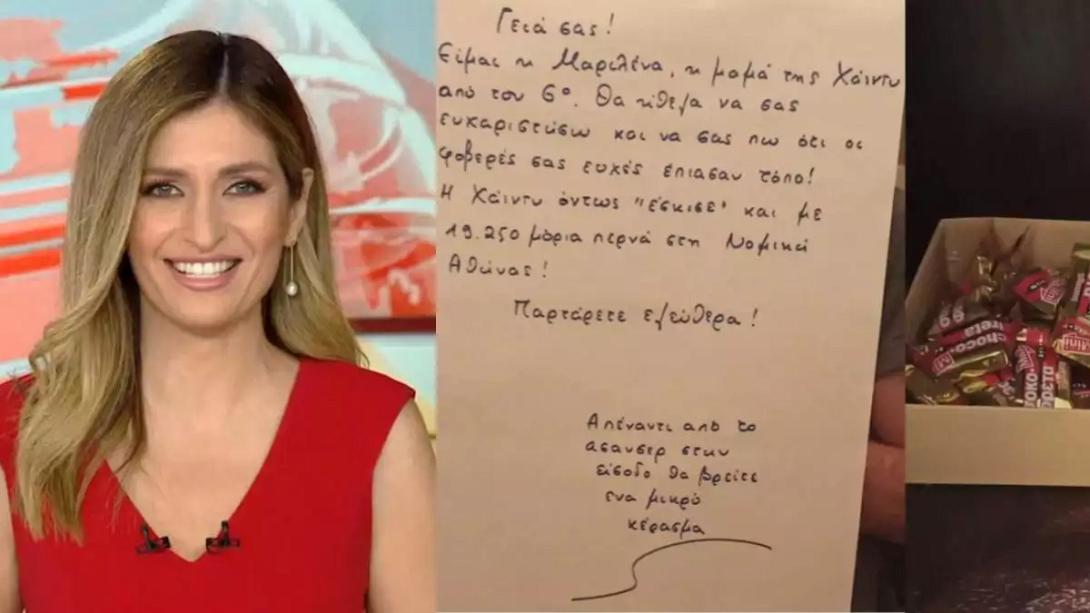 Γειά σας!
Είμαι η Μαριλένα, η μαμά της Χάιντυ
από τον 6º. Θα ήθελα να σας
ευχαριστήσω και να σας πω ότι οι
φοβερές σας ευχές έπιασαν τόπο!
Η Χάιντυ όντως "έσκισε" και με
19.250 μόρια περνά στη Νομική
Αθήνας!
Παρτάρετε ελεύθερα!
Απέναντι από το
ασανσέρ στην
είσοδο θα βρείτε
ένα μικρό
κέρασμα
choco
reta